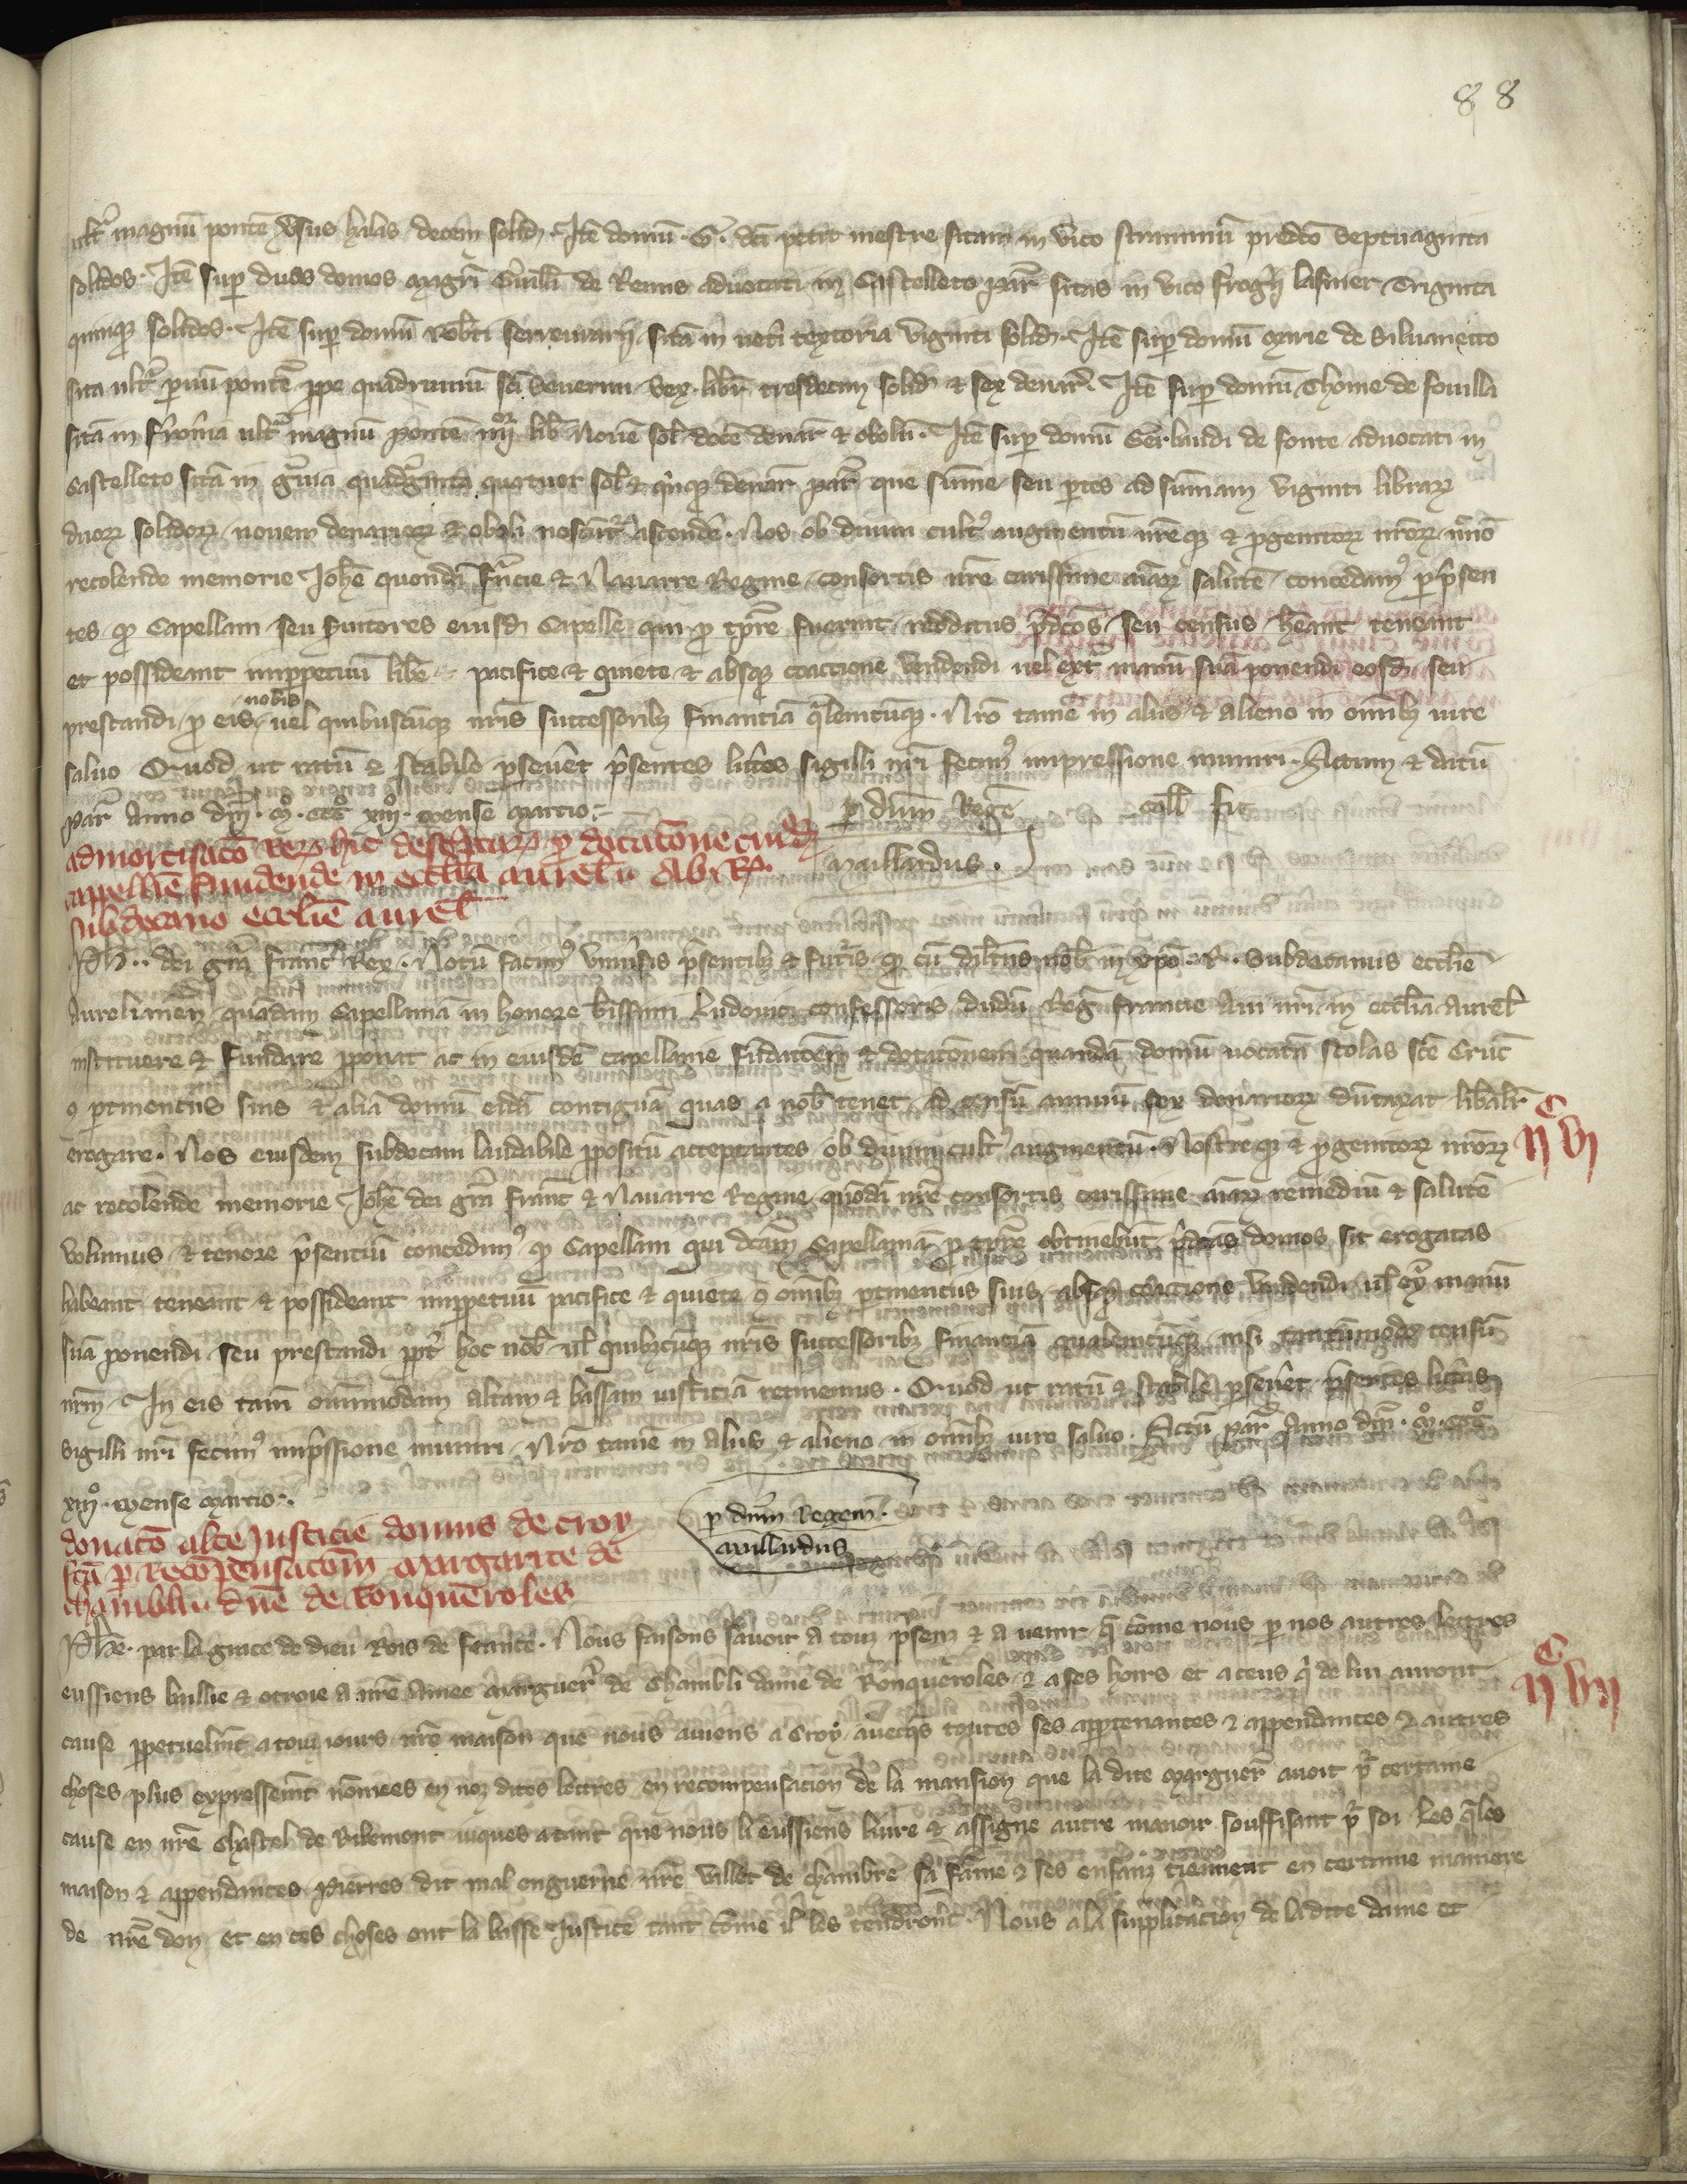 88
ultͣ magnū pontē vsus halas decem solid. Itē domū G. dci petit mestre sitam in vico straminū predco septuaginta
solidos. Itē sup duas domos magri Guilli de Remis aduocati in Castelleto par sitas in vico frogr lasnier Triginta
quinqz solidos. Itē sup domū Robti serreurarij sitā in vetī texoria viginti solid. Itē sup domū marie de Siluanecto
sita ultͣ paruū pontē prope quadruuiū sci Seuerini sex libr tresdecim solid & sex denar. Itē sup domū Thome de fouilla
sitā in fromīa ultͣ magnū pontē iiijor lib Nouē sol decē denar & obolū. Itē sup domū Gerlaudi de fonte aduocati in
Castelleto sitā in guia quadginta quatuor sol & qinqz denar par que summe seu ptes ad summam viginti librar
duor solidor nouem denarior & oboli noscūtr ascendē. Nos ob diuini cult augmentū nreqz & pgenitor nror nno
recolende memorie Johē quondā frācie & Nauarre Regine consortis nre carissime aiār salutē concedim pprsen
tes qd Capellani seu seruitores eiusd Capelle qui p tpre fuerint redditus pdcos seu census heant teneant
et possideant imppetuū libē pacifice & quiete & absqz coaccione vendendi uel extͣ manū suā ponendi eosd seu
prestandi p eis nobis uel quibuscūqz nris successoribz financiā qlemcūqz. Nro tamē in aliis & alieno in omībz iure
saluo Quod ut ratū & stabile pseuet psentes littas sigilli nri fecim impressione muniri. Actum & datū
par Anno dnī. mͦ. cccͦ xiijͦ. mense marcio.
p dnm Regē coll fit
Maillardus.
admortisacō Rer hic descptar p dotacōne cuiusd
cappellīe fundende in ecclīa aurelī Ab R.
subdecano ecclīe aurel
Ph.. dei gra franc Rex. Notū facim vniusis psentibz & futis qd cū dilcus nob in xpo R. Subdecanus ecclīe
Aurelianen quādam Capellaniā in honore bissimi Ludouici confessoris dudū Reg francie aui nri in ecclīa aurel
instituere & fundare pponat ac in eiusdē capellanie fūdacōem & dotacōnem quandā domū uocatā scolas sce Cruc
9 ptinentiis suis & aliā domū eidē contiguā quas a nob tenet ad censū annuū sex denarior dūtaxat libalr
erogare. Nos eiusdem subdecani laudabile ppositū acceptantes ob diuini cult augmentū Nostreqz & pgenitor nror
ac recolende memorie Johē dei gra franc & Nauarre Regine quodā nre consortis carissime aiār remediū & salutē
volumus & tenore psentiū concedim qd Capellani qui dcam Capellaniā p tpre obtinebūt pdcas domos sic erogatas
habeant teneant & possideant imppetuū pacifice & quiete 9 omībz ptinentiis suis absqz coaccione vendendi ul ext manū
suā ponendi seu prestandi ppt hoc nob ul quibzcūqz nris successoribz financiā qualemcūqz nisi tantūmodo censū
nrm. In eis tam omnimodam altam & bassam iusticiā retinemus. Quod ut ratū & stabile pseuet psentes littas
sigilli nri fecim impssione muniri. Nro tamē in aliis & alieno in omībz iure saluo. Actū par Anno dnī. mͦ. cccͦ
xiijͦ. mense marcio.
ijc vj
p dnm Regem.
maillardus
donacō alte Justicie domus de croy
fcā p recōpensacōm margarite de
chambli. dnē de Ronqueroles
Phe. par la grace de dieu Rois de france. Nous faisons sauoir a touz psenz & a uenir q come nous p nos autres lettres
eussiens baillie & otroie a nre amee marguer de Chambli dame de Ronqueroles & a ses hoirs et a ceus q de lui auront
cause ppetuelmt a touz iours nre maison que nous auiens a Croy auecqs toutes ses apptenances & appendances & autres
choses plus expressemt nomees en noz dites lettres en recompensacion de la mansion que la dite marguer auoit p certaine
cause en nre chastel de Ribemont iuques atant que nous li eussiens liure & assigne autre manoir souffisant p soi les qles
maison & appendances Pierres dit mal enguerne nre vallet de chambre sa fame & ses enfanz tiennent en certaine maniere
de nre don et en ces choses ont la basse Justice tant come il les tendront. Nous a la supplicacion de ladite dame et
ijc vij